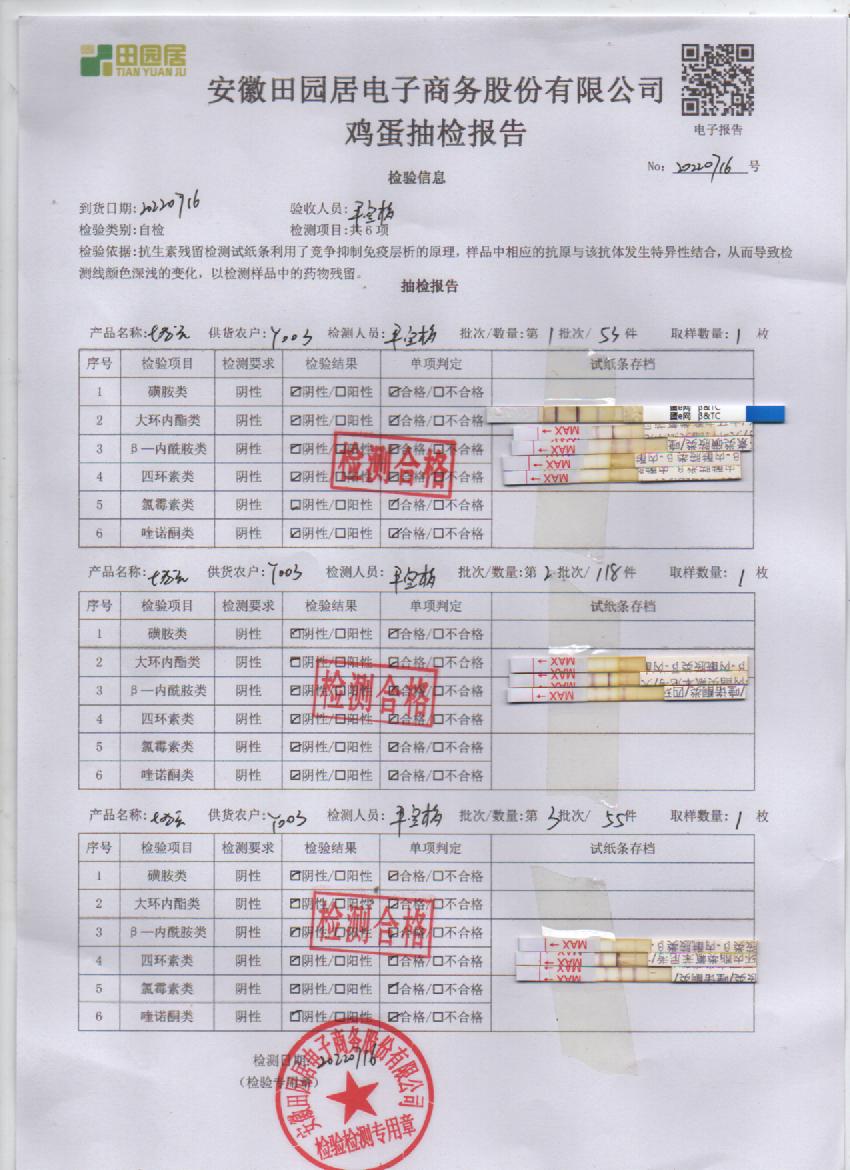 田园居
TIAN YUAN JU
安徽田园居电子商务股份有限公司
鸡蛋抽检报告
电子报告
No: 20220716 号
检验信息
到货日期:20220716 验收人员:
检验类别:自检 检测项目:共6项
检验依据:抗生素残留检测试纸条利用了竞争抑制免疫层析的原理，样品中相应的抗原与该抗体发生特异性结合，从而导致检
测线颜色深浅的变化，以检测样品中的药物残留。
抽检报告
产品名称: 供货农户:Y003 检测人员: 批次/数量:第1批次/ 53件 取样数量:1 枚
序号 检验项目 检测要求 检验结果 单项判定 试纸条存档
1 磺胺类 阴性 ☑阴性/☐阳性 ☑合格/☐不合格
2 大环内酯类 阴性 ☑阴性/☐阳性 ☑合格/☐不合格
3 β—内酰胺类 阴性 ☑阴性/☐阳性 ☑合格/☐不合格
4 四环素类 阴性 ☑阴性/☐阳性 ☑合格/☐不合格
5 氯霉素类 阴性 ☑阴性/☐阳性 ☑合格/☐不合格
6 喹诺酮类 阴性 ☑阴性/☐阳性 ☑合格/☐不合格
检测合格
β&TC
β&TC
MAX
MAX
MAX
MAX
产品名称: 供货农户:Y003 检测人员: 批次/数量:第2批次/ 118件 取样数量:1 枚
序号 检验项目 检测要求 检验结果 单项判定 试纸条存档
1 磺胺类 阴性 ☑阴性/☐阳性 ☑合格/☐不合格
2 大环内酯类 阴性 ☑阴性/☐阳性 ☑合格/☐不合格
3 β—内酰胺类 阴性 ☑阴性/☐阳性 ☑合格/☐不合格
4 四环素类 阴性 ☑阴性/☐阳性 ☑合格/☐不合格
5 氯霉素类 阴性 ☑阴性/☐阳性 ☑合格/☐不合格
6 喹诺酮类 阴性 ☑阴性/☐阳性 ☑合格/☐不合格
检测合格
MAX
MAX
MAX
产品名称: 供货农户:Y003 检测人员: 批次/数量:第3批次/ 55件 取样数量:1 枚
序号 检验项目 检测要求 检验结果 单项判定 试纸条存档
1 磺胺类 阴性 ☑阴性/☐阳性 ☑合格/☐不合格
2 大环内酯类 阴性 ☑阴性/☐阳性 ☑合格/☐不合格
3 β—内酰胺类 阴性 ☑阴性/☐阳性 ☑合格/☐不合格
4 四环素类 阴性 ☑阴性/☐阳性 ☑合格/☐不合格
5 氯霉素类 阴性 ☑阴性/☐阳性 ☑合格/☐不合格
6 喹诺酮类 阴性 ☑阴性/☐阳性 ☑合格/☐不合格
检测合格
MAX
MAX
MAX
MAX
检测日期:20220716
(检验专用章)
安徽田园居电子商务股份有限公司
检验检测专用章